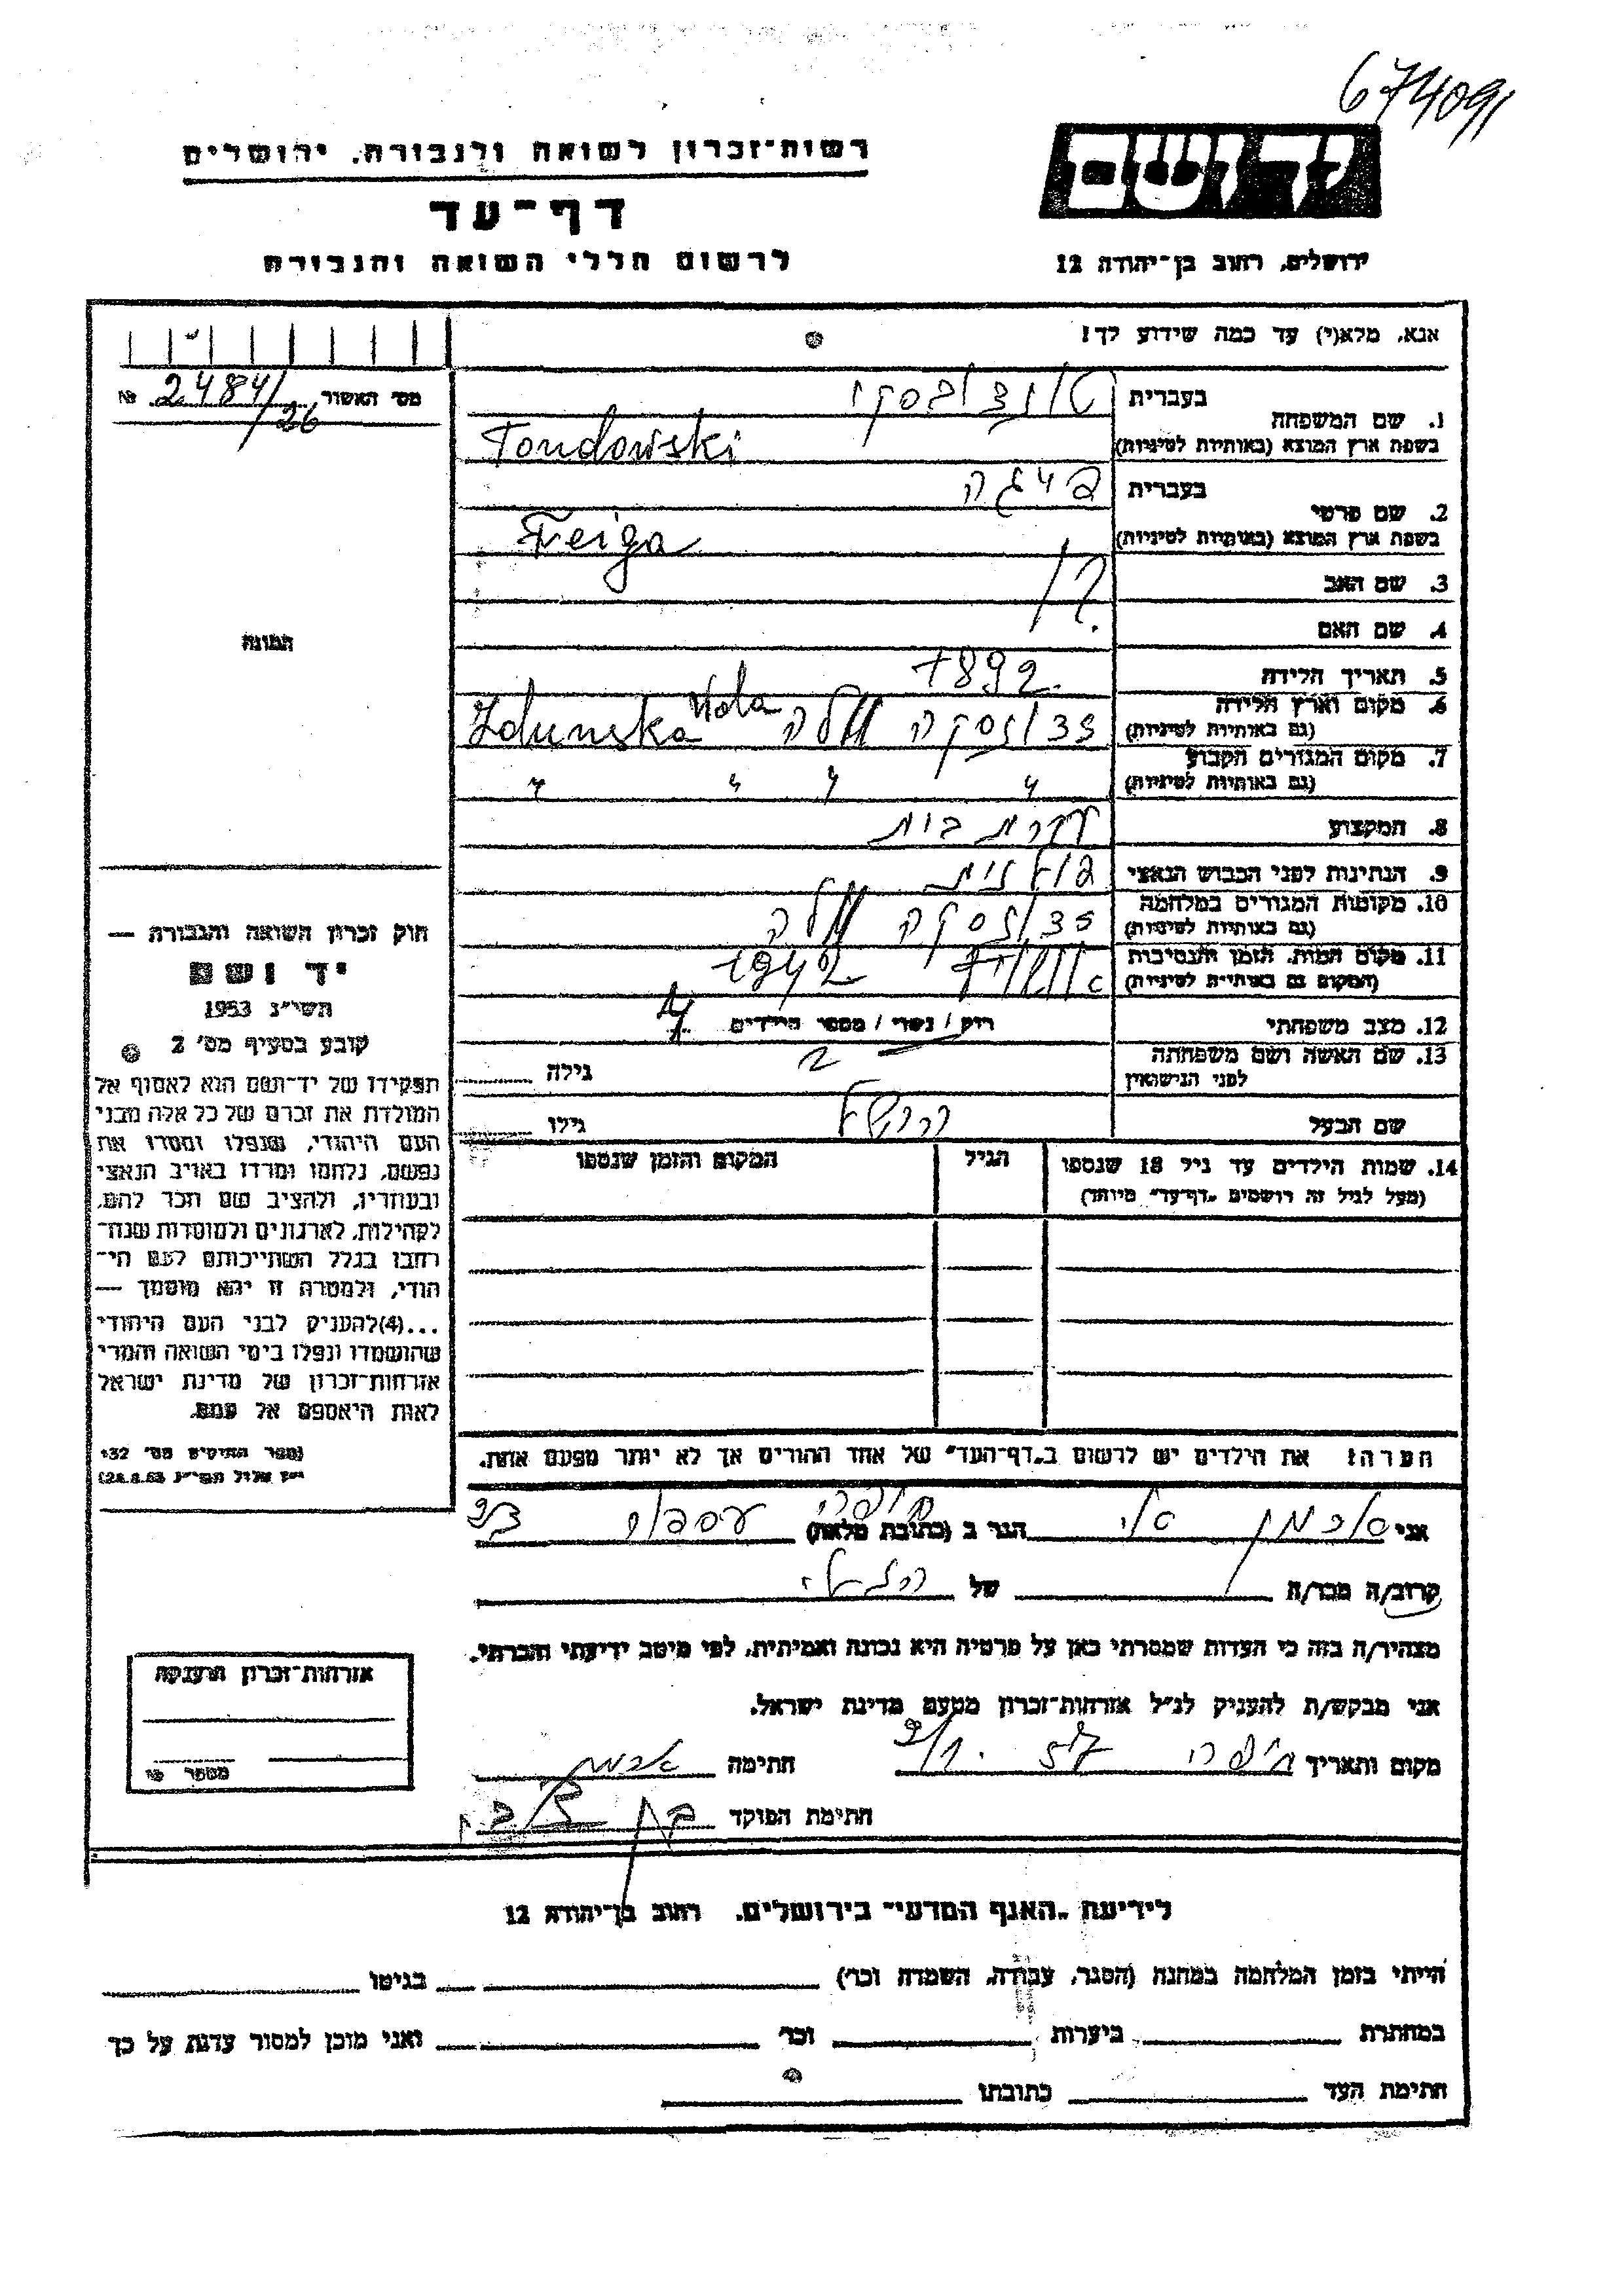 674091
יד ושם
רשות-זכרון לשואה ולגבורה, ירושלים
דף-עד
לרשום חללי השואה והגבורה
ירושלים, רחוב בן-יהודה 12
אנא, מלא(י) עד כמה שידוע לך!
מס׳ האשור 2484/26 №
1. שם המשפחה בעברית
בשפת ארץ המוצא (באותיות לטיניות) Tondowski
2. שם פרטי בעברית פייגה
בשפת ארץ המוצא (באותיות לטיניות) Feiga
3. שם האב ?
4. שם האם
5. תאריך הלידה 1892
6. מקום וארץ הלידה
(גם באותיות לטיניות) זדונסקה וולה Zdunska Wola
7. מקום המגורים הקבוע
(גם באותיות לטיניות) " " " "
8. המקצוע עקרת בית
9. הנתינות לפני הכבוש הנאצי פולנית
10. מקומות המגורים במלחמה
(גם באותיות לטיניות) זדונסקה וולה
11. מקום המות, הזמן והנסיבות
(המקום גם באותיות לטיניות) 1942
12. מצב משפחתי רוק / נשוי / מספר הילדים
13. שם האשה ושם משפחתה
לפני הנישואין גילה
שם הבעל הרשל גילו
14. שמות הילדים עד גיל 18 שנספו
(מעל לגיל זה רושמים „דף-עד" מיוחד)
הגיל
המקום והזמן שנספו
הערה: את הילדים יש לרשום ב„דף-העד" של אחד ההורים אך לא יותר מפעם אחת.
התמונה
חוק זכרון השואה והגבורה —
יד ושם
תשי״ג 1953
קובע בסעיף מס׳ 2
תפקידו של יד-ושם הוא לאסוף אל
המולדת את זכרם של כל אלה מבני
העם היהודי, שנפלו ומסרו את
נפשם, נלחמו ומרדו באויב הנאצי
ובעוזריו, ולהציב שם וזכר להם,
לקהילות, לארגונים ולמוסדות שנח־
רבו בגלל השתייכותם לעם הי־
הודי, ולמטרה זו יהא מוסמך —
...(4)להעניק לבני העם היהודי
שהושמדו ונפלו בימי השואה והמרי
אזרחות-זכרון של מדינת ישראל
לאות היאספם אל עמם.
(ספר החוקים מס׳ 132
י״ז אלול תשי״ג 28.8.53)
אני הגר ב (כתובת מלאה) חיפה
קרוב/ה מכר/ה של
מצהיר/ה בזה כי העדות שמסרתי כאן על פרטיה היא נכונה ואמיתית, לפי מיטב ידיעתי והכרתי.
אני מבקש/ת להעניק לנ״ל אזרחות-זכרון מטעם מדינת ישראל.
מקום ותאריך חיפה חתימה
חתימת הפוקד
אזרחות-זכרון הוענקה
מספר
לידיעת „האגף המדעי" בירושלים, רחוב בן-יהודה 12
הייתי בזמן המלחמה במחנה (הסגר, עבודה, השמדה וכו׳) בגיטו
במחתרת ביערות וכו׳ ואני מוכן למסור עדות על כך
חתימת העד כתובתו